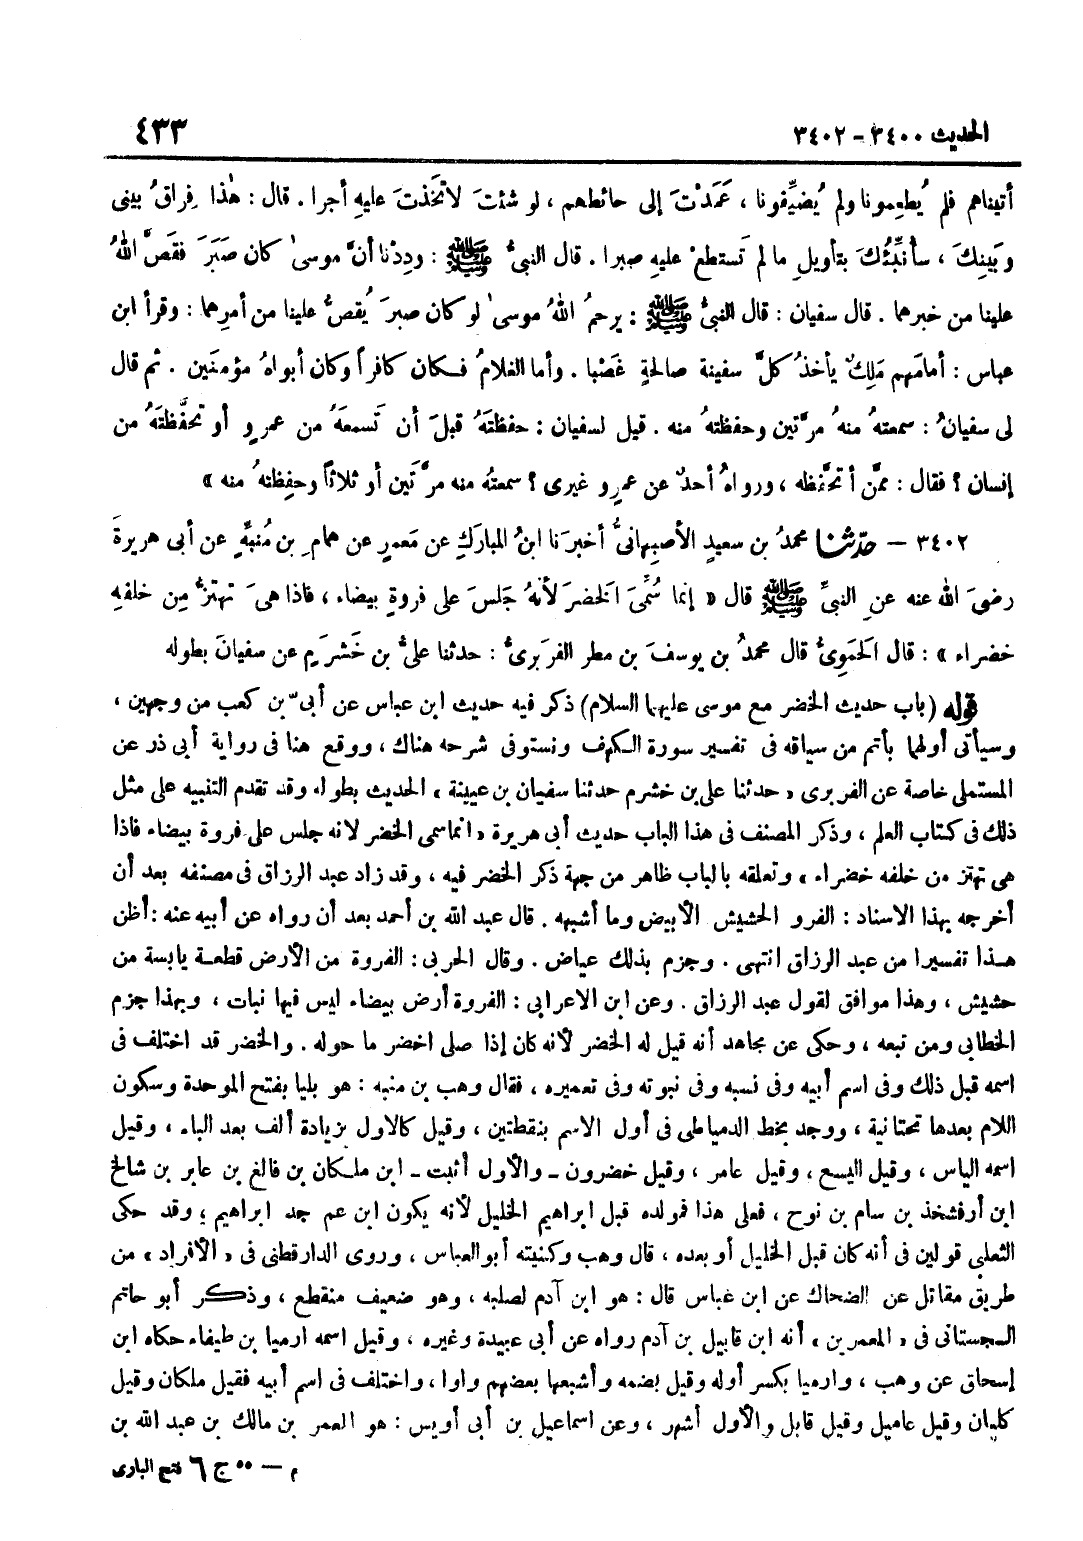 الحديث ٣٤٠٠ - ٣٤٠٢ ٤٣٣
أتيناهم فلم يُطعِمونا ولم يُضيِّفونا ، عَمَدْتَ إلى حائطهم ، لو شئتَ لاتخَذتَ عليهِ أجرا . قال : هٰذا فِراقُ بينى
وبَينِكَ ، سأنبِّئُكَ بتأويلِ مالم تَستطعْ عليهِ صبرا . قال النبىُّ ﷺ : ودِدْنا أنَّ موسىٰ كان صَبَرَ فقَصَّ اللهُ
علينا من خبرهما . قال سفيان : قال النبىُّ ﷺ : يرحمُ اللهُ موسىٰ لو كان صبرَ يُقصُّ علينا من أمرِهما : وقرأ ابن
عباس : أمامَهم مَلِكٌ يأخذُ كلَّ سفينة صالحةٍ غَصْبا . وأما الغلامُ فكان كافراً وكان أبواهُ مؤمنَين . ثم قال
لى سفيانُ : سمعتهُ منهُ مرَّتين وحفظتهُ منه . قيل لسفيان : حفظتَهُ قبلَ أن تَسمعَهُ من عمرٍو أو تحفَّظتَهُ من
إنسان ؟ فقال : ممَّن أتحفَّظه ، ورواهُ أحدٌ عن عمرٍو غيرى ؟ سمعتُه منه مرَّتَين أو ثلاثاً وحفِظتهُ منه »
٣٤٠٢ - حدّثنا محمدُ بن سعيدٍ الأصبهانىُّ أخبرَنا ابنُ المباركِ عن مَعمرٍ عن همامِ بن مُنبِّهٍ عن أبى هريرةَ
رضىَ الله عنه عنِ النبىِّ ﷺ قال « إنما سُمِّىَ الخضرَ لأنهُ جَلسَ على فروةٍ بيضاء ، فاذا هىَ تهتزُّ مِن خلفهِ
خضراء » : قال الحَمَوِىُّ قال محمدُ بن يوسفَ بن مطر الفَرَبرىُّ : حدثنا علىُّ بن خَشرَمٍ عن سفيانَ بطوله
قوله (باب حديث الخضر مع موسى عليهما السلام) ذكر فيه حديث ابن عباس عن أبىّ بن كعب من وجهين ،
وسيأتى أولهما بأتم من سياقه فى تفسير سورة الكهف ونستوفى شرحه هناك ، ووقع هنا فى رواية أبى ذر عن
المستملى خاصة عن الفربرى « حدثنا على بن خشرم حدثنا سفيان بن عيينة » الحديث بطوله وقد تقدم التنبيه على مثل
ذلك فى كتاب العلم ، وذكر المصنف فى هذا الباب حديث أبى هريرة « انما سمى الخضر لانه جلس على فروة بيضاء فاذا
هى تهتز من خلفه خضراء » وتعلقه بالباب ظاهر من جهة ذكر الخضر فيه ، وقد زاد عبد الرزاق فى مصنفه بعد أن
أخرجه بهذا الاسناد : الفرو الحشيش الأبيض وما أشبهه . قال عبد الله بن أحمد بعد أن رواه عن أبيه عنه : أظن
هذا تفسيرا من عبد الرزاق انتهى . وجزم بذلك عياض . وقال الحربى : الفروة من الأرض قطعة يابسة من
حشيش ، وهذا موافق لقول عبد الرزاق . وعن ابن الاعرابى : الفروة أرض بيضاء ليس فيها نبات ، وبهذا جزم
الخطابى ومن تبعه ، وحكى عن مجاهد أنه قيل له الخضر لأنه كان إذا صلى اخضر ما حوله . والخضر قد اختلف فى
اسمه قبل ذلك وفى اسم أبيه وفى نسبه وفى نبوته وفى تعميره ، فقال وهب بن منبه : هو بليا بفتح الموحدة وسكون
اللام بعدها تحتانية ، ووجد بخط الدمياطى فى أول الاسم بنقطتين ، وقيل كالاول بزيادة ألف بعد الباء ، وقيل
اسمه الياس ، وقيل اليسع ، وقيل عامر ، وقيل خضرون ـ والأول أثبت ـ ابن ملكان بن فالغ بن عابر بن شالخ
ابن أرفشخذ بن سام بن نوح ، فعلى هذا فمولده قبل ابراهيم الخليل لأنه يكون ابن عم جد ابراهيم ، وقد حكى
الثعلبى قولين فى أنه كان قبل الخليل أو بعده ، قال وهب وكنيته أبو العباس ، وروى الدارقطنى فى « الأفراد » من
طريق مقاتل عن الضحاك عن ابن عباس قال : هو ابن آدم لصلبه ، وهو ضعيف منقطع ، وذكر أبو حاتم
السجستانى فى « المعمرين » أنه ابن قابيل بن آدم رواه عن أبى عبيدة وغيره ، وقيل اسمه ارميا بن طيفاء حكاه ابن
إسحاق عن وهب ، وارميا بكسر أوله وقيل بضمه وأشبعها بعضهم واوا ، واختلف فى اسم أبيه فقيل ملكان وقيل
كليان وقيل عاميل وقيل قابل والأول أشهر ، وعن اسماعيل بن أبى أويس : هو المعمر بن مالك بن عبد الله بن
م — ٥٥ ج ٦ فتح البارى